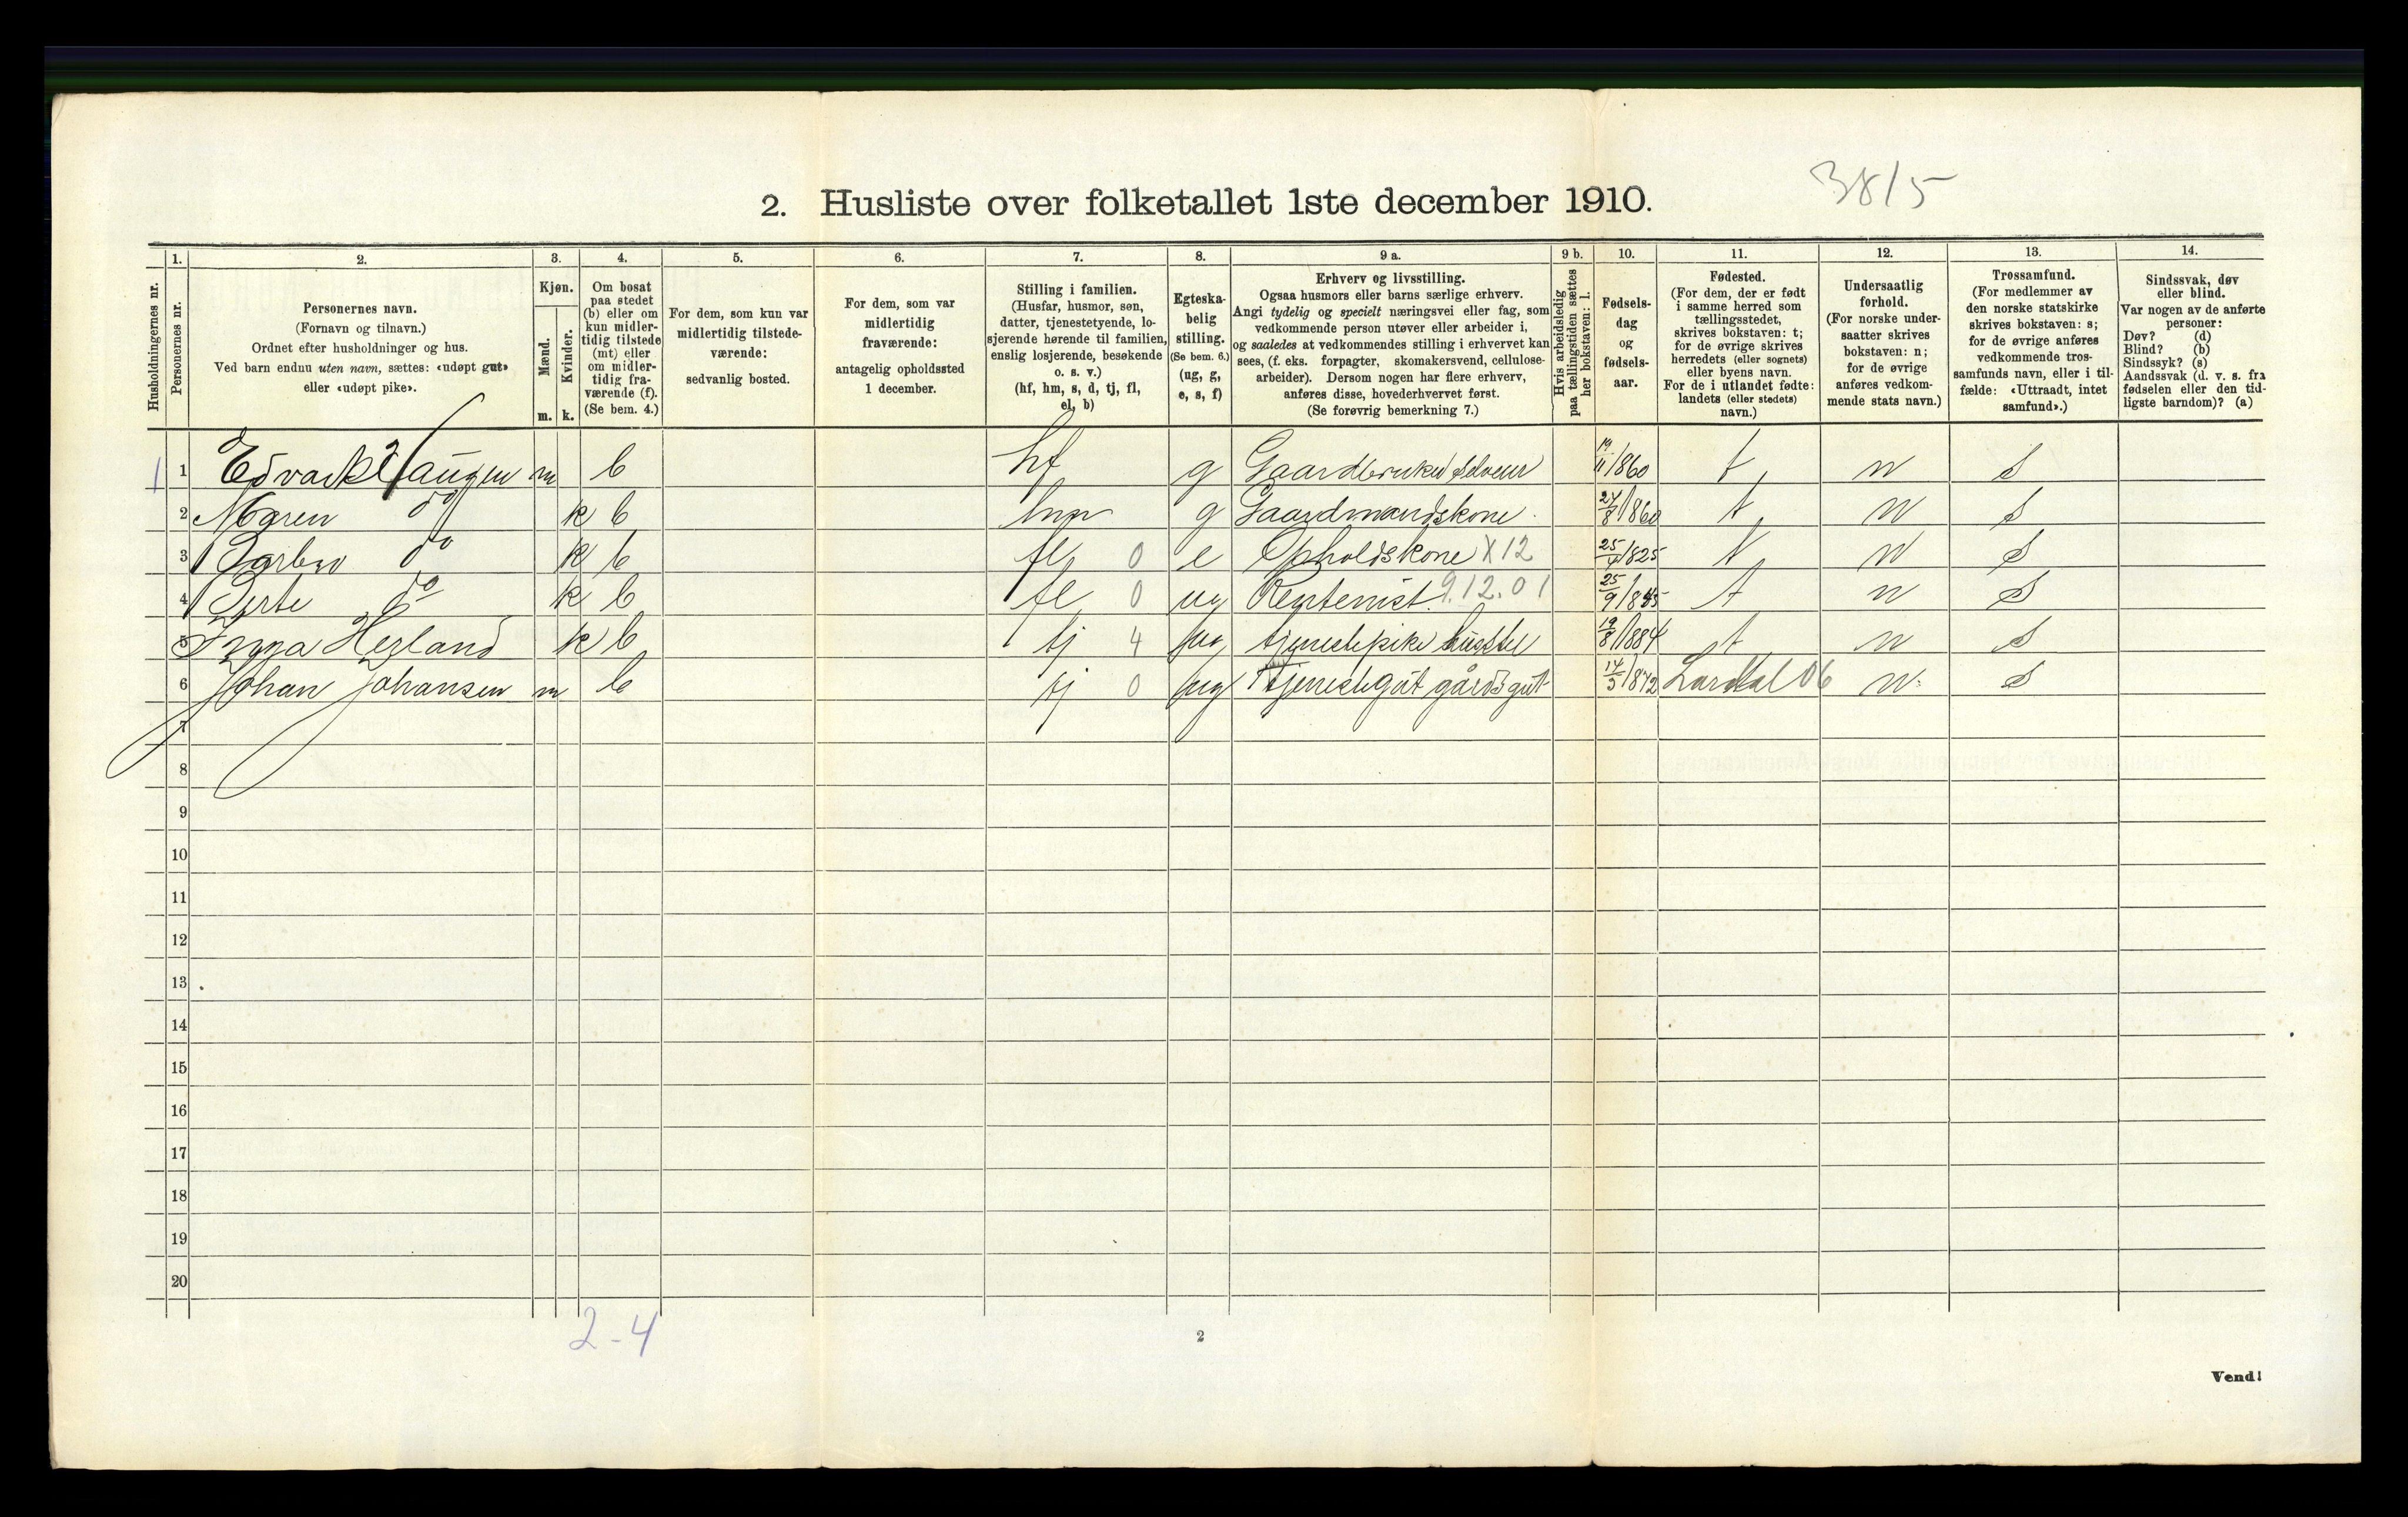 3815
2. Husliste over folketallet 1ste december 1910.
Husholdningernes nr.
1.
Personernes nr.
2.
Personernes navn.
(Fornavn og tilnavn.)
Ordnet efter husholdninger og hus.
Ved barn endnu uten navn, sættes: «udøpt gut»
eller «udøpt pike».
3.
Kjøn.
Mænd.
Kvinder.
m. k.
4.
Om bosat
paa stedet
(b) eller om
kun midler-
tidig tilstede
(mt) eller
om midler-
tidig fra-
værende (f).
(Se bem. 4.)
5.
For dem, som kun var
midlertidig tilstede-
værende:
sedvanlig bosted.
6.
For dem, som var
midlertidig
fraværende:
antagelig opholdssted
1 december.
7.
Stilling i familien.
(Husfar, husmor, søn,
datter, tjenestetyende, lo-
sjerende hørende til familien,
enslig losjerende, besøkende
o. s. v.)
(hf, hm, s, d, tj, fl,
el, b)
8.
Egteska-
belig
stilling.
(Se bem. 6.)
(ug, g,
e, s, f)
9 a.
Erhverv og livsstilling.
Ogsaa husmors eller barns særlige erhverv.
Angi tydelig og specielt næringsvei eller fag, som
vedkommende person utøver eller arbeider i,
og saaledes at vedkommendes stilling i erhvervet kan
sees, (f. eks. forpagter, skomakersvend, cellulose-
arbeider). Dersom nogen har flere erhverv,
anføres disse, hovederhvervet først.
(Se forøvrig bemerkning 7.)
9 b.
Hvis arbeidsledig
paa tællingstiden sættes
her bokstaven: l.
10.
Fødsels-
dag
og
fødsels-
aar.
11.
Fødested.
(For dem, der er født
i samme herred som
tællingsstedet,
skrives bokstaven: t;
for de øvrige skrives
herredets (eller sognets)
eller byens navn.
For de i utlandet fødte:
landets (eller stedets)
navn.)
12.
Undersaatlig
forhold.
(For norske under-
saatter skrives
bokstaven: n;
for de øvrige
anføres vedkom-
mende stats navn.)
13.
Trossamfund.
(For medlemmer av
den norske statskirke
skrives bokstaven: s;
for de øvrige anføres
vedkommende tros-
samfunds navn, eller i til-
fælde: «Uttraadt, intet
samfund».)
14.
Sindssvak, døv
eller blind.
Var nogen av de anførte
personer:
Døv? (d)
Blind? (b)
Sindssyk? (s)
Aandssvak (d. v. s. fra
fødselen eller den tid-
ligste barndom)? (a)
1 1 Edvard Haugen m b hf g Gaardbruker selveier 19/11/860 t n s
2 Maren do k b hm g Gaardmandskone 24/8/860 t n s
3 Barbro do k b fl 0 e Opholdskone X12 25/4/825 t n s
4 do k b fl 0 ug Rentenist 9.12.01 25/9/855 t n s
5 Inga Hegland k b tj 4 ug tjenestepike husstel 19/8/884 t n s
6 Johan Johansen m b tj 0 ug Tjenestegut gårdsgut 14/5/872 Lardal 06 n s
7
8
9
10
11
12
13
14
15
16
17
18
19
20
2-4
2
Vend!